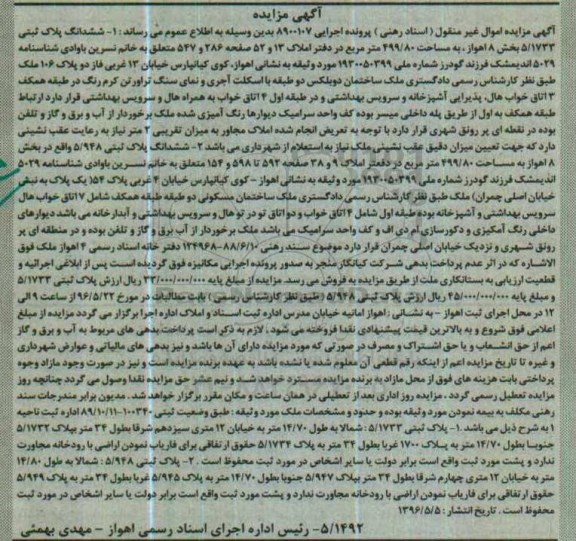 آگهی مزایده
آگهی مزایده اموال غیر منقول ( اسناد رهنی ) پرونده اجرایی ۸۹۰۰۱۰۷ بدین وسیله به اطلاع عموم می رساند : ۱- ششدانگ پلاک ثبتی
۵/۱۷۳۳ بخش ۸ اهواز ، به مساحت ۴۹۹/۸۰ متر مربع در دفتر املاک ۱۳ و ۵۲ صفحه ۲۸۶ و ۵۴۷ متعلق به خانم نسرین باوادی شناسنامه
۵۰۲۹ اندیمشک فرزند گودرز شماره ملی ۱۹۳۰۰۵۰۳۹۹ مورد وثیقه به نشانی اهواز، کوی کیانپارس خیابان ۱۳ غربی فاز دو پلاک ۱۰۶ ملک
طبق نظر کارشناس رسمی دادگستری ملک ساختمان دوبلکس دو طبقه با اسکلت آجری و نمای سنگ تراورتن کرم رنگ در طبقه همکف
۳ اتاق خواب هال، پذیرایی آشپزخانه و سرویس بهداشتی و در طبقه اول ۴ اتاق خواب به همراه هال و سرویس بهداشتی قرار دارد ارتباط
طبقه همکف به اول از طریق پله داخلی میسر بوده کف واحد سرامیک دیوارها رنگ آمیزی شده ملک برخوردار از آب و برق و گاز و تلفن
بوده در نقطه ای پر رونق شهری قرار دارد با توجه به تعریض انجام شده املاک مجاور به میزان تقریبی ۲ متر نیاز به رعایت عقب نشینی
دارد که جهت تعیین میزان دقیق عقب نشینی ملک نیاز به استعلام از شهرداری می باشد ۲- ششدانگ پلاک ثبتی ۵/۹۴۸ واقع در بخش
۸ اهواز به مساحت ۴۹۹/۸۰ متر مربع در دفتر املاک ۹ و ۳۸ صفحه ۵۹۲ تا ۵۹۸ و ۱۵۴ متعلق به خانم نسرین باوادی شناسنامه ۵۰۲۹
اندیمشک فرزند گودرز شماره ملی ۱۹۳۰۰۵۰۳۹۹ مورد وثیقه به نشانی اهواز - کوی کیانپارس خیابان ۴ غربی پلاک ۵۴( یک پلاک به نبش
خیابان اصلی چمران) ملک طبق نظر کارشناس رسمی دادگستری ملک ساختمان مسکونی دو طبقه طبقه همکف شامل ۷ اتاق خواب هال
سرویس بهداشتی و آشپزخانه بوده طبقه اول شامل ۴ اتاق خواب و دو اتاق تو در تو هال و سرویس بهداشتی و آبدارخانه می باشد دیوارهای
داخلی رنگ آمیزی و دکورسازی ام دی اف و کف واحد سرامیک می باشد ملک برخوردار از آب برق و گاز و تلفن بوده و در منطقه ای پر
رونق شهری و نزدیک خیابان اصلی چمران قرار دارد موضوع سند رهنی ۸۸/۶/۱۰-۱۳۴۹۶۸ دفتر خانه اسناد رسمی ۴ اهواز ملک فوق
الاشاره که در اثر عدم پرداخت بدهی شرکت کیانکار منجر به صدور پرونده اجرایی مکانیزه فوق گردیده است پس از ابلاغی اجرائیه و
قطعیت ارزیابی به بستانکاری ملت از طریق مزایده به فروش می رسد. مزایده از مبلغ پایه ۳۳/۰۰۰/۰۰۰/۰۰۰ ریال ارزش پلاک ثبتی ۵/۱۷۳۳
و مبلغ پایه ۴۵/۰۰۰/۰۰۰/۰۰۰ ریال ارزش پلاک ثبتی ۵/۹۴۸ ( طبق نظر کارشناس رسمی ) بابت مطالبات در مورخ ۹۶/۵/۲۲ از ساعت ۹ الی
۱۲ در محل اجرای ثبت اهواز - به نشانی : اهواز امانیه خیابان مدرس اداره ثبت اسناد و املاک اداره اجرا برگزار می گردد مزایده از مبلغ
اعلامی فوق شروع و به بالاترین قیمت پیشنهادی نقدا فروخته می شود . لازم به ذکر است پرداخت بدهی های مربوط به آب و برق و گاز
اعم از حق انشعاب و یا حق اشتراک و مصرف در صورتی که مورد مزایده دارای آن ها باشد و نیز بدهی های مالیاتی و عوارض شهرداری
و غیره تا تاریخ مزایده اعم از اینکه رقم قطعی آن معلوم شده یا نشده باشد به عهده برنده مزایده است و نیز در صورت وجود مازاد وجوه
پرداختی بابت هزینه های فوق از محل مازاد به برنده مزایده مسترد خواهد شد و نیم عشر حق مزایده نقدا وصول می گردد چنانچه روز
مزایده تعطیل رسمی گردد ، مزایده روز اداری بعد از تعطیلی در همان ساعت و مکان مقرر برگزار خواهد شد. مدیون برابر مندرجات سند
رهنی مکلف به بیمه نمودن مورد وثیقه بوده و حدود و مشخصات ملک مورد وثیقه : طبق وضعیت ثبتی ۱۰۰۳۴۰-۸۹/۱۰/۱۱ اداره ثبت ناحیه
۱ به شرح ذیل می باشد .۱- پلاک ثبتی ۵/۱۷۳۳ : شمالا به طول ۱۴/۷۰ متر به خیابان ۱۲ متری سیزدهم شرقا بطول ۳۴ متر بپلاک ۵/۱۷۳۲
جنوبا بطول ۱۴/۷۰ متر به پلاک ۱۷۰۰ غربا بطول ۳۴ متر به پلاک ۵/۱۷۳۴ حقوق ارتفاقی برای فاریاب نمودن اراضی با رودخانه مجاورت
ندارد و پشت مورد ثبت واقع است برابر دولت یا سایر اشخاص در مورد ثبت محفوظ است . ۲- پلاک ثبتی ۵/۹۴۸ : شمالا به طول ۱۴/۸۰
متر به خیابان ۱۲ متری چهارم شرقا بطول ۳۴ متر بپلاک ۵/۹۴۷ جنوبا بطول ۱۴/۷۰ متر به پلاک ۵/۹۴۵ غربا بطول ۳۴ متر به پلاک ۵/۹۴۹
حقوق ارتفاقی برای فاریاب نمودن اراضی با رودخانه مجاورت ندارد و پشت مورد ثبت واقع است برابر دولت یا سایر اشخاص در مورد ثبت
محفوظ است . تاریخ انتشار : ۱۳۹۶/۵/۵
۵/۱۴۹۲- رئیس اداره اجرای اسناد رسمی اهواز - مهدی بهمئی